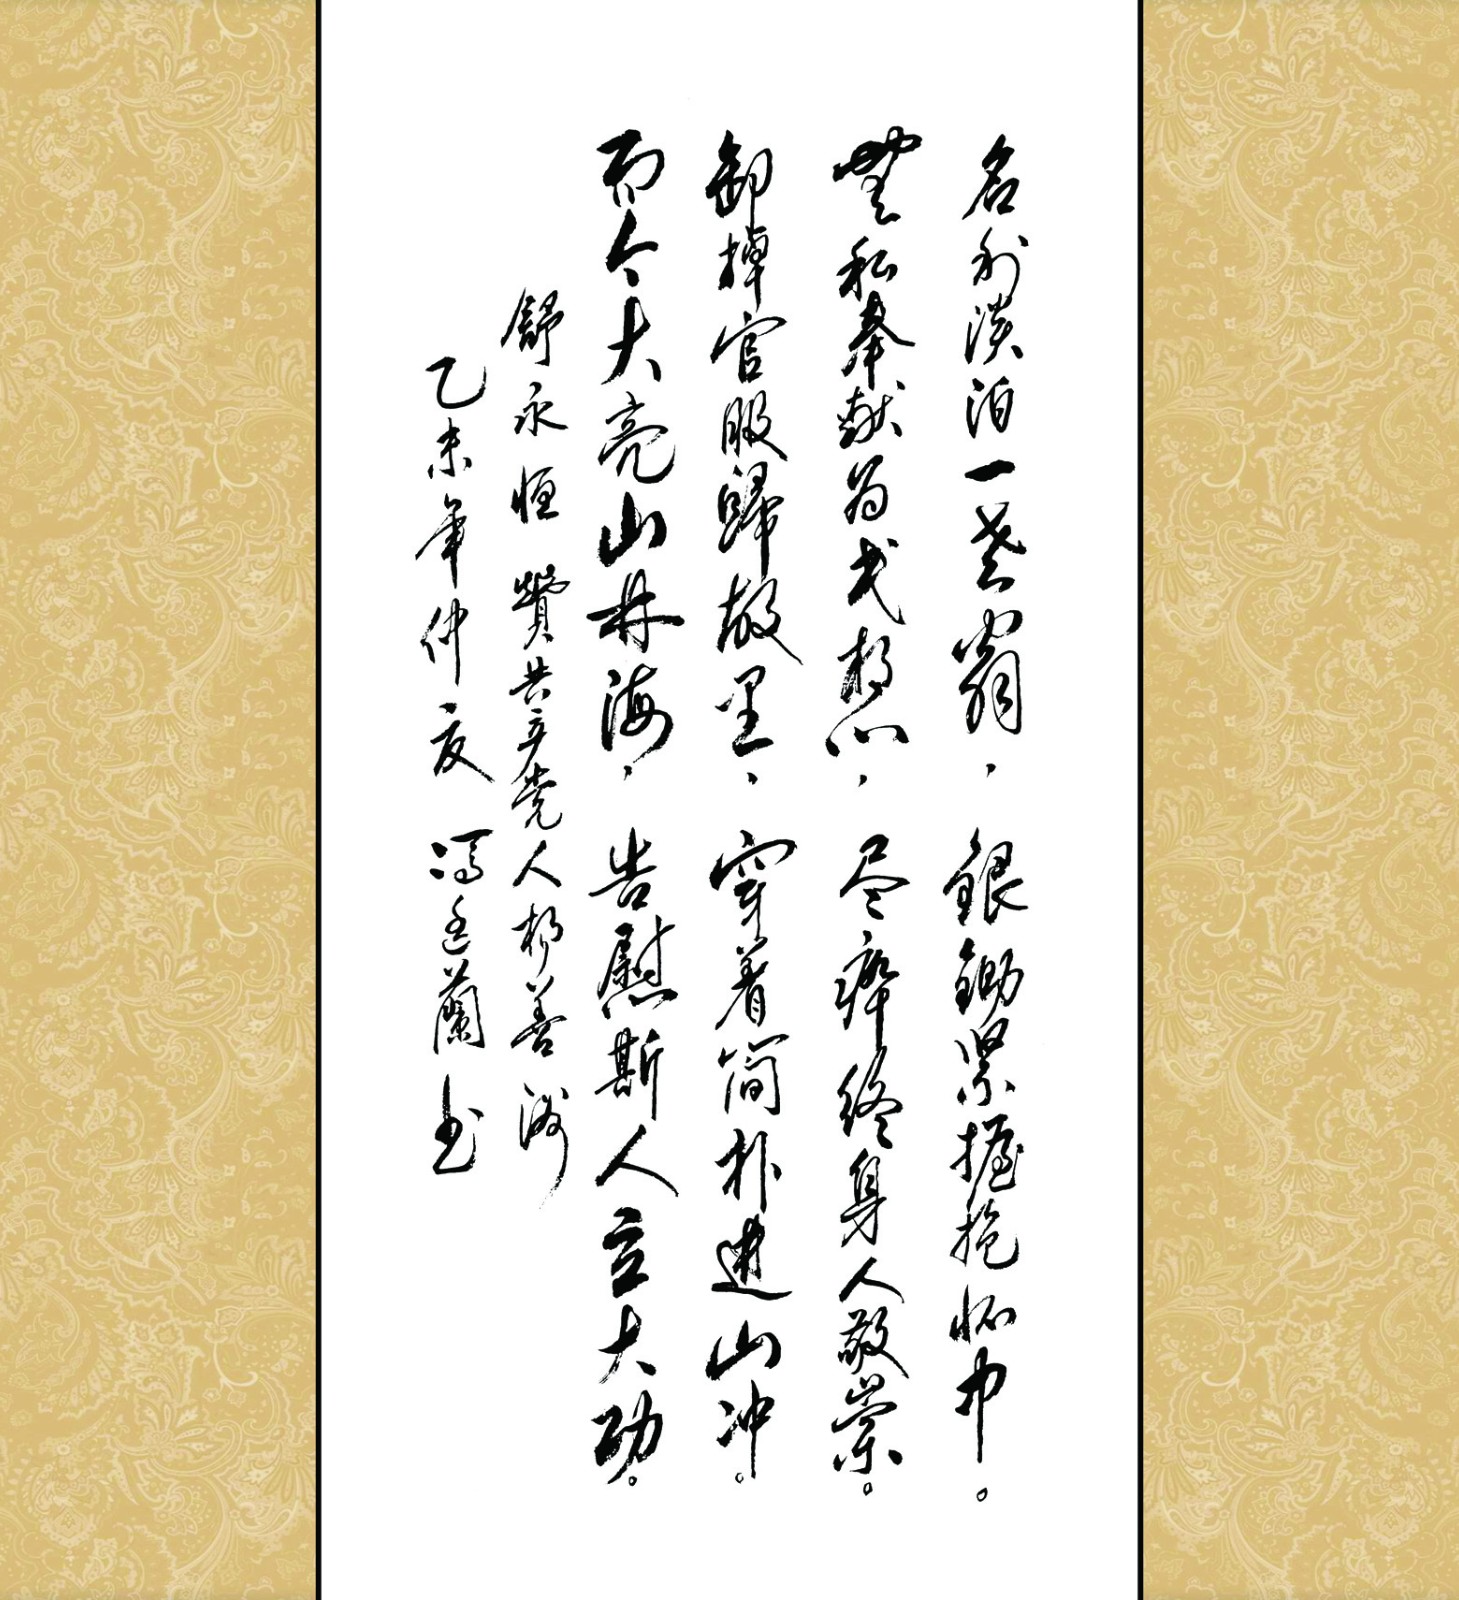 名利淡泊一老翁，銀鋤紧握抱怀中。
無私奉献为心，尽瘁终身人敬崇。
卸掉官服歸故里，穿着简朴進山冲。
而今大亮山林海，告慰斯人立大功。
舒永恒 贊共产党人杨善洲
乙未年仲夏 馮廷蘭书